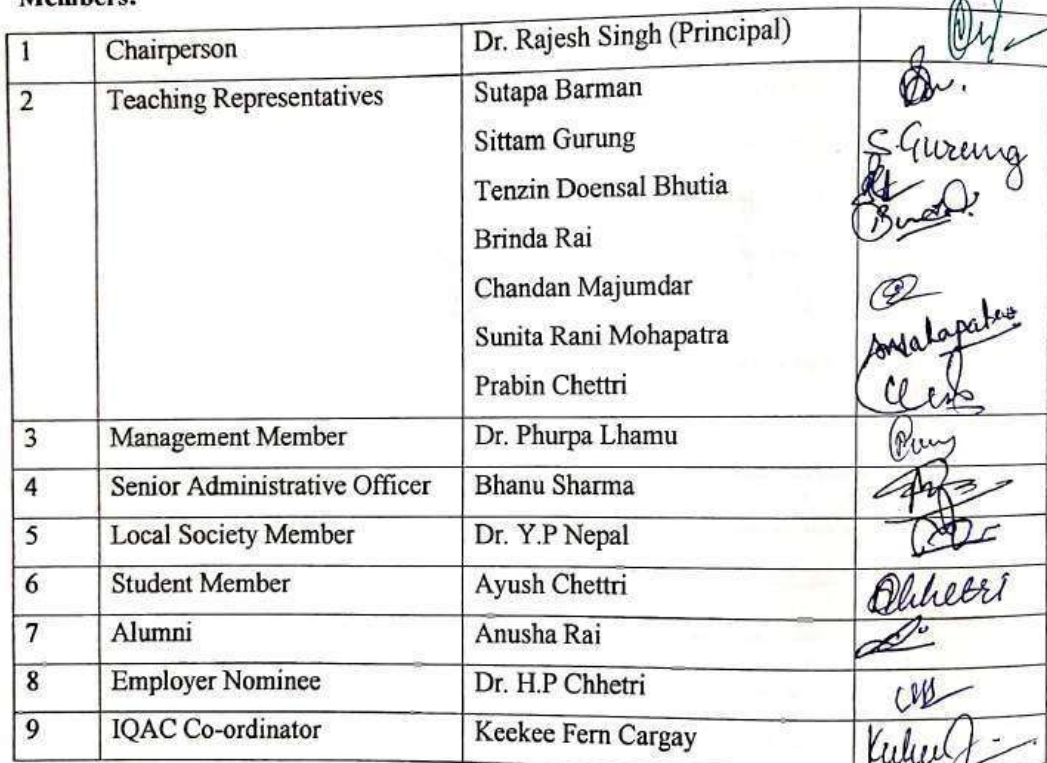 Members:
1 Chairperson Dr. Rajesh Singh (Principal)
2 Teaching Representatives Sutapa Barman
Sittam Gurung S. Gurung
Tenzin Doensal Bhutia
Brinda Rai
Chandan Majumdar
Sunita Rani Mohapatra
Prabin Chettri
3 Management Member Dr. Phurpa Lhamu
4 Senior Administrative Officer Bhanu Sharma
5 Local Society Member Dr. Y.P Nepal
6 Student Member Ayush Chettri
7 Alumni Anusha Rai
8 Employer Nominee Dr. H.P Chhetri
9 IQAC Co-ordinator Keekee Fern Cargay